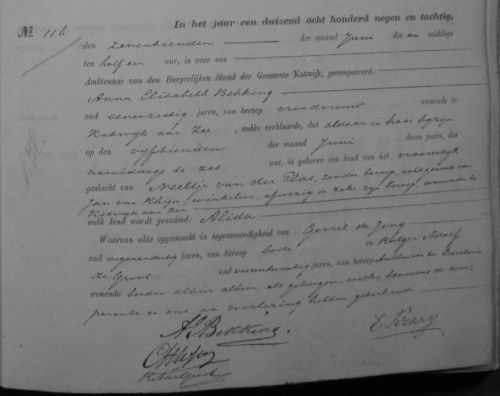 In het jaar een duizend acht honderd negen en tachtig,
No. 116
den zeventienden der maand Juni des na middags
ten half een ure, is voor ons
Ambtenaar van den Burgerlijken Stand der Gemeente Katwijk, gecompareerd:
Anna Elisabeth Bekking
oud zevenzestig jaren, van beroep vroedvrouw wonende te
Katwijk aan Zee, welke verklaarde, dat aldaar in haar bijzijn
op den vijftienden der maand Juni dezes jaars, des
namiddags te zes ure, is geboren een kind van het vrouwelijk
geslacht van Neeltje van der Plas, zonder beroep, echtgenoot van
Jan van Rhijn, winkelier, afwezig in zake zijn beroep, wonende te
Katwijk aan Zee
welk kind wordt genaamd: Alida
Waarvan akte opgemaakt in tegenwoordigheid van Gerrit de Jong
oud negenendertig jaren, van beroep bode en Rutger Adolf
de Groot oud vierentwintig jaren, van beroep Ambtenaar ter Secretarie
wonende beiden alhier als getuigen, welke benevens de com-
parante en ons, na voorlezing hebben geteekend
A. E. Bekking.